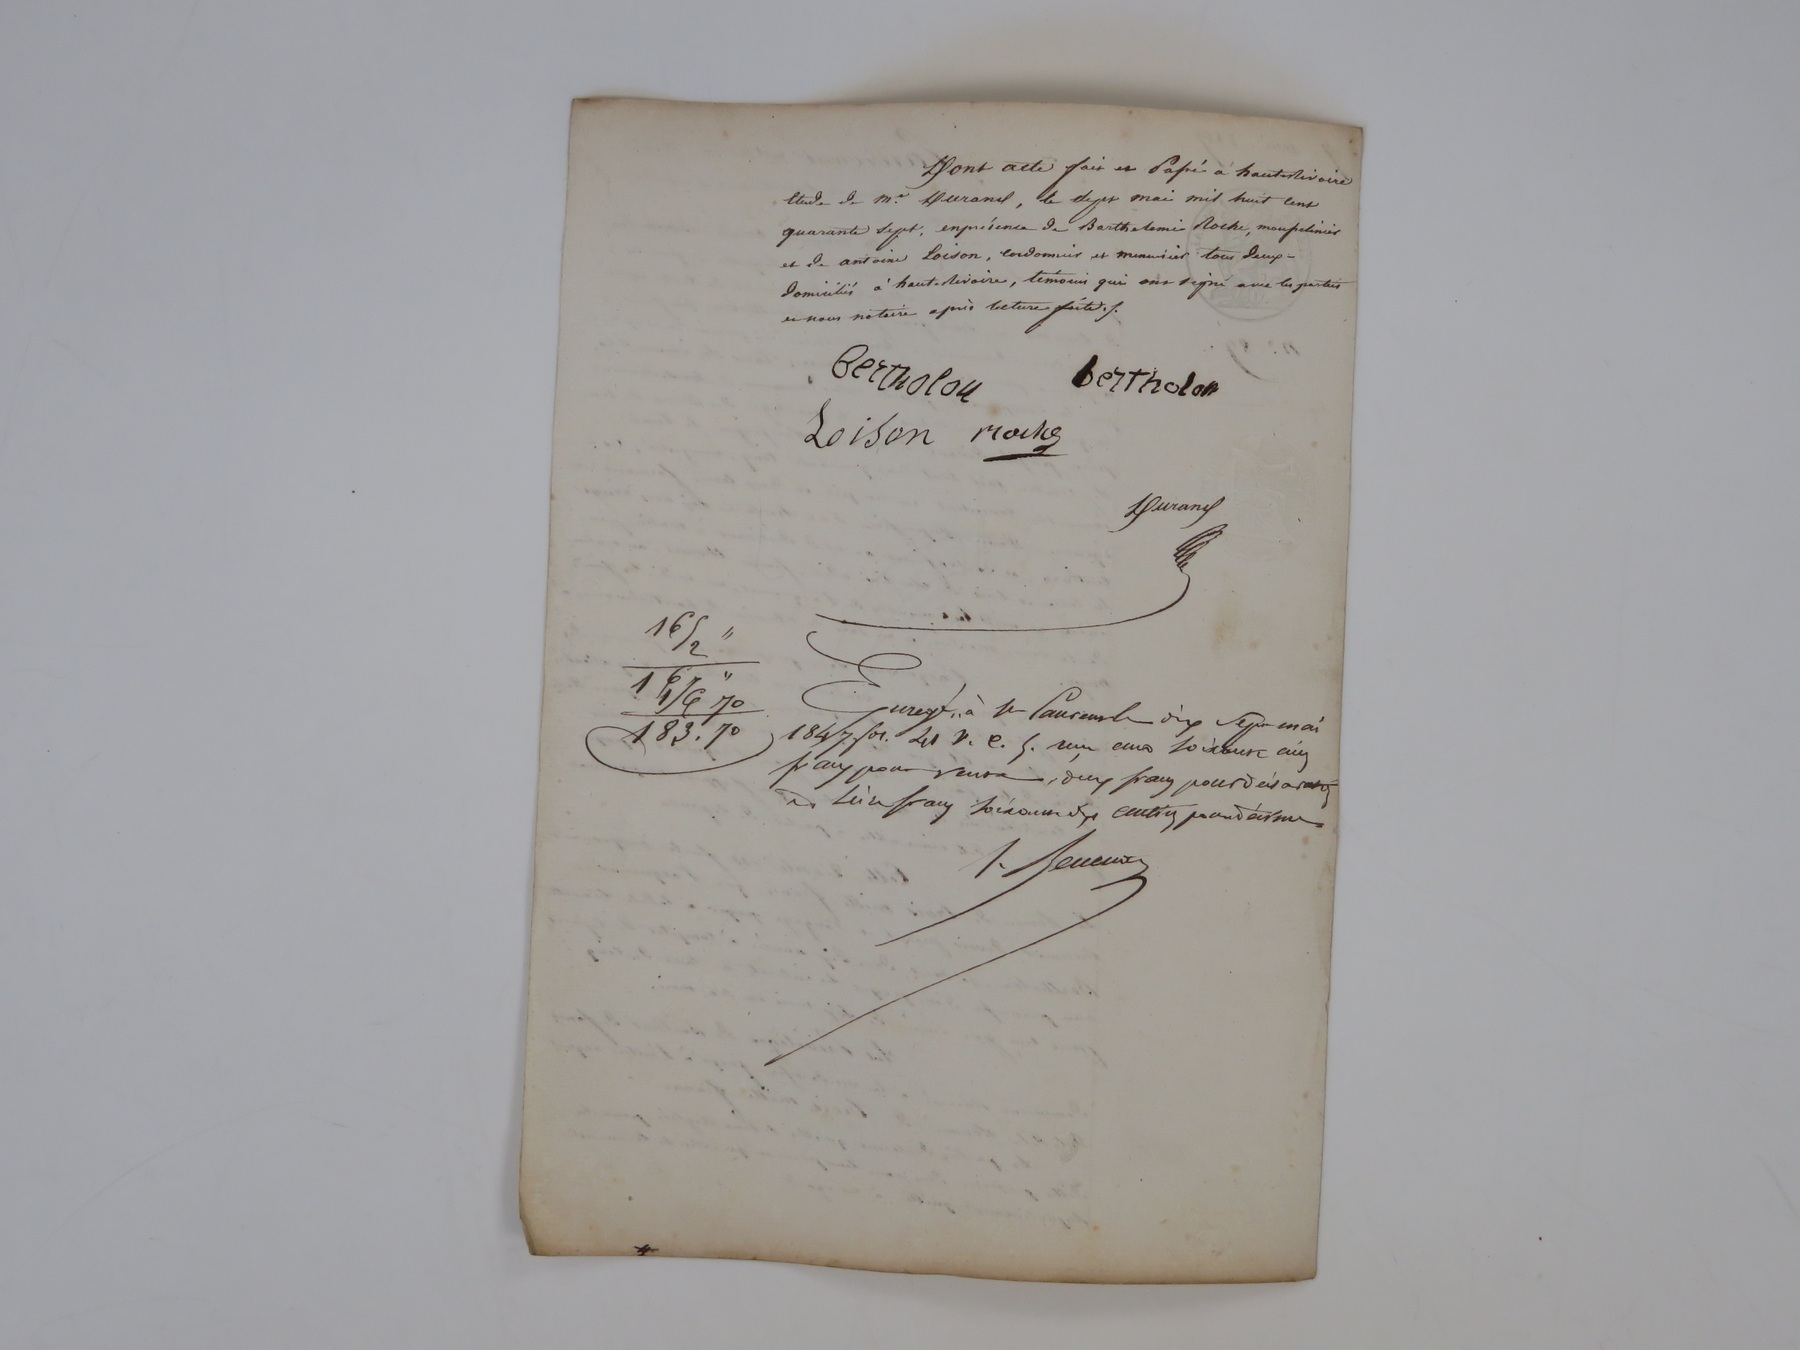 Dont acte fait et Passé à haute-Rivoire
Etude de Me Durand, le Sept mai mil huit cent
quarante sept, en présence de Barthelemi Roche,
et de antoine Loison, cordonnier et menuisier tous deux
domiciliés à haute-Rivoire, témoins qui ont signé avec les parties
et nous notaire après lecture faite ./.
Bertholon bertholon
Loison roche
Durand
165 "
2 "
167 "
16 70
183. 70
Enregé. à St Laurent le dix Sept mai
1847, fol. V. C. 5. reçu cent soixante cinq
francs pour vente, deux francs pour
et seize francs soixante dix centimes pour décime